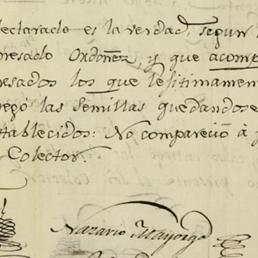 declarado es la verdad, segun
presado Ordoñez, y que acomp
resados los que lexitimament
regó las semillas quedandose
tablecidos: No compareció á
Colector.
Nazario Mayorga